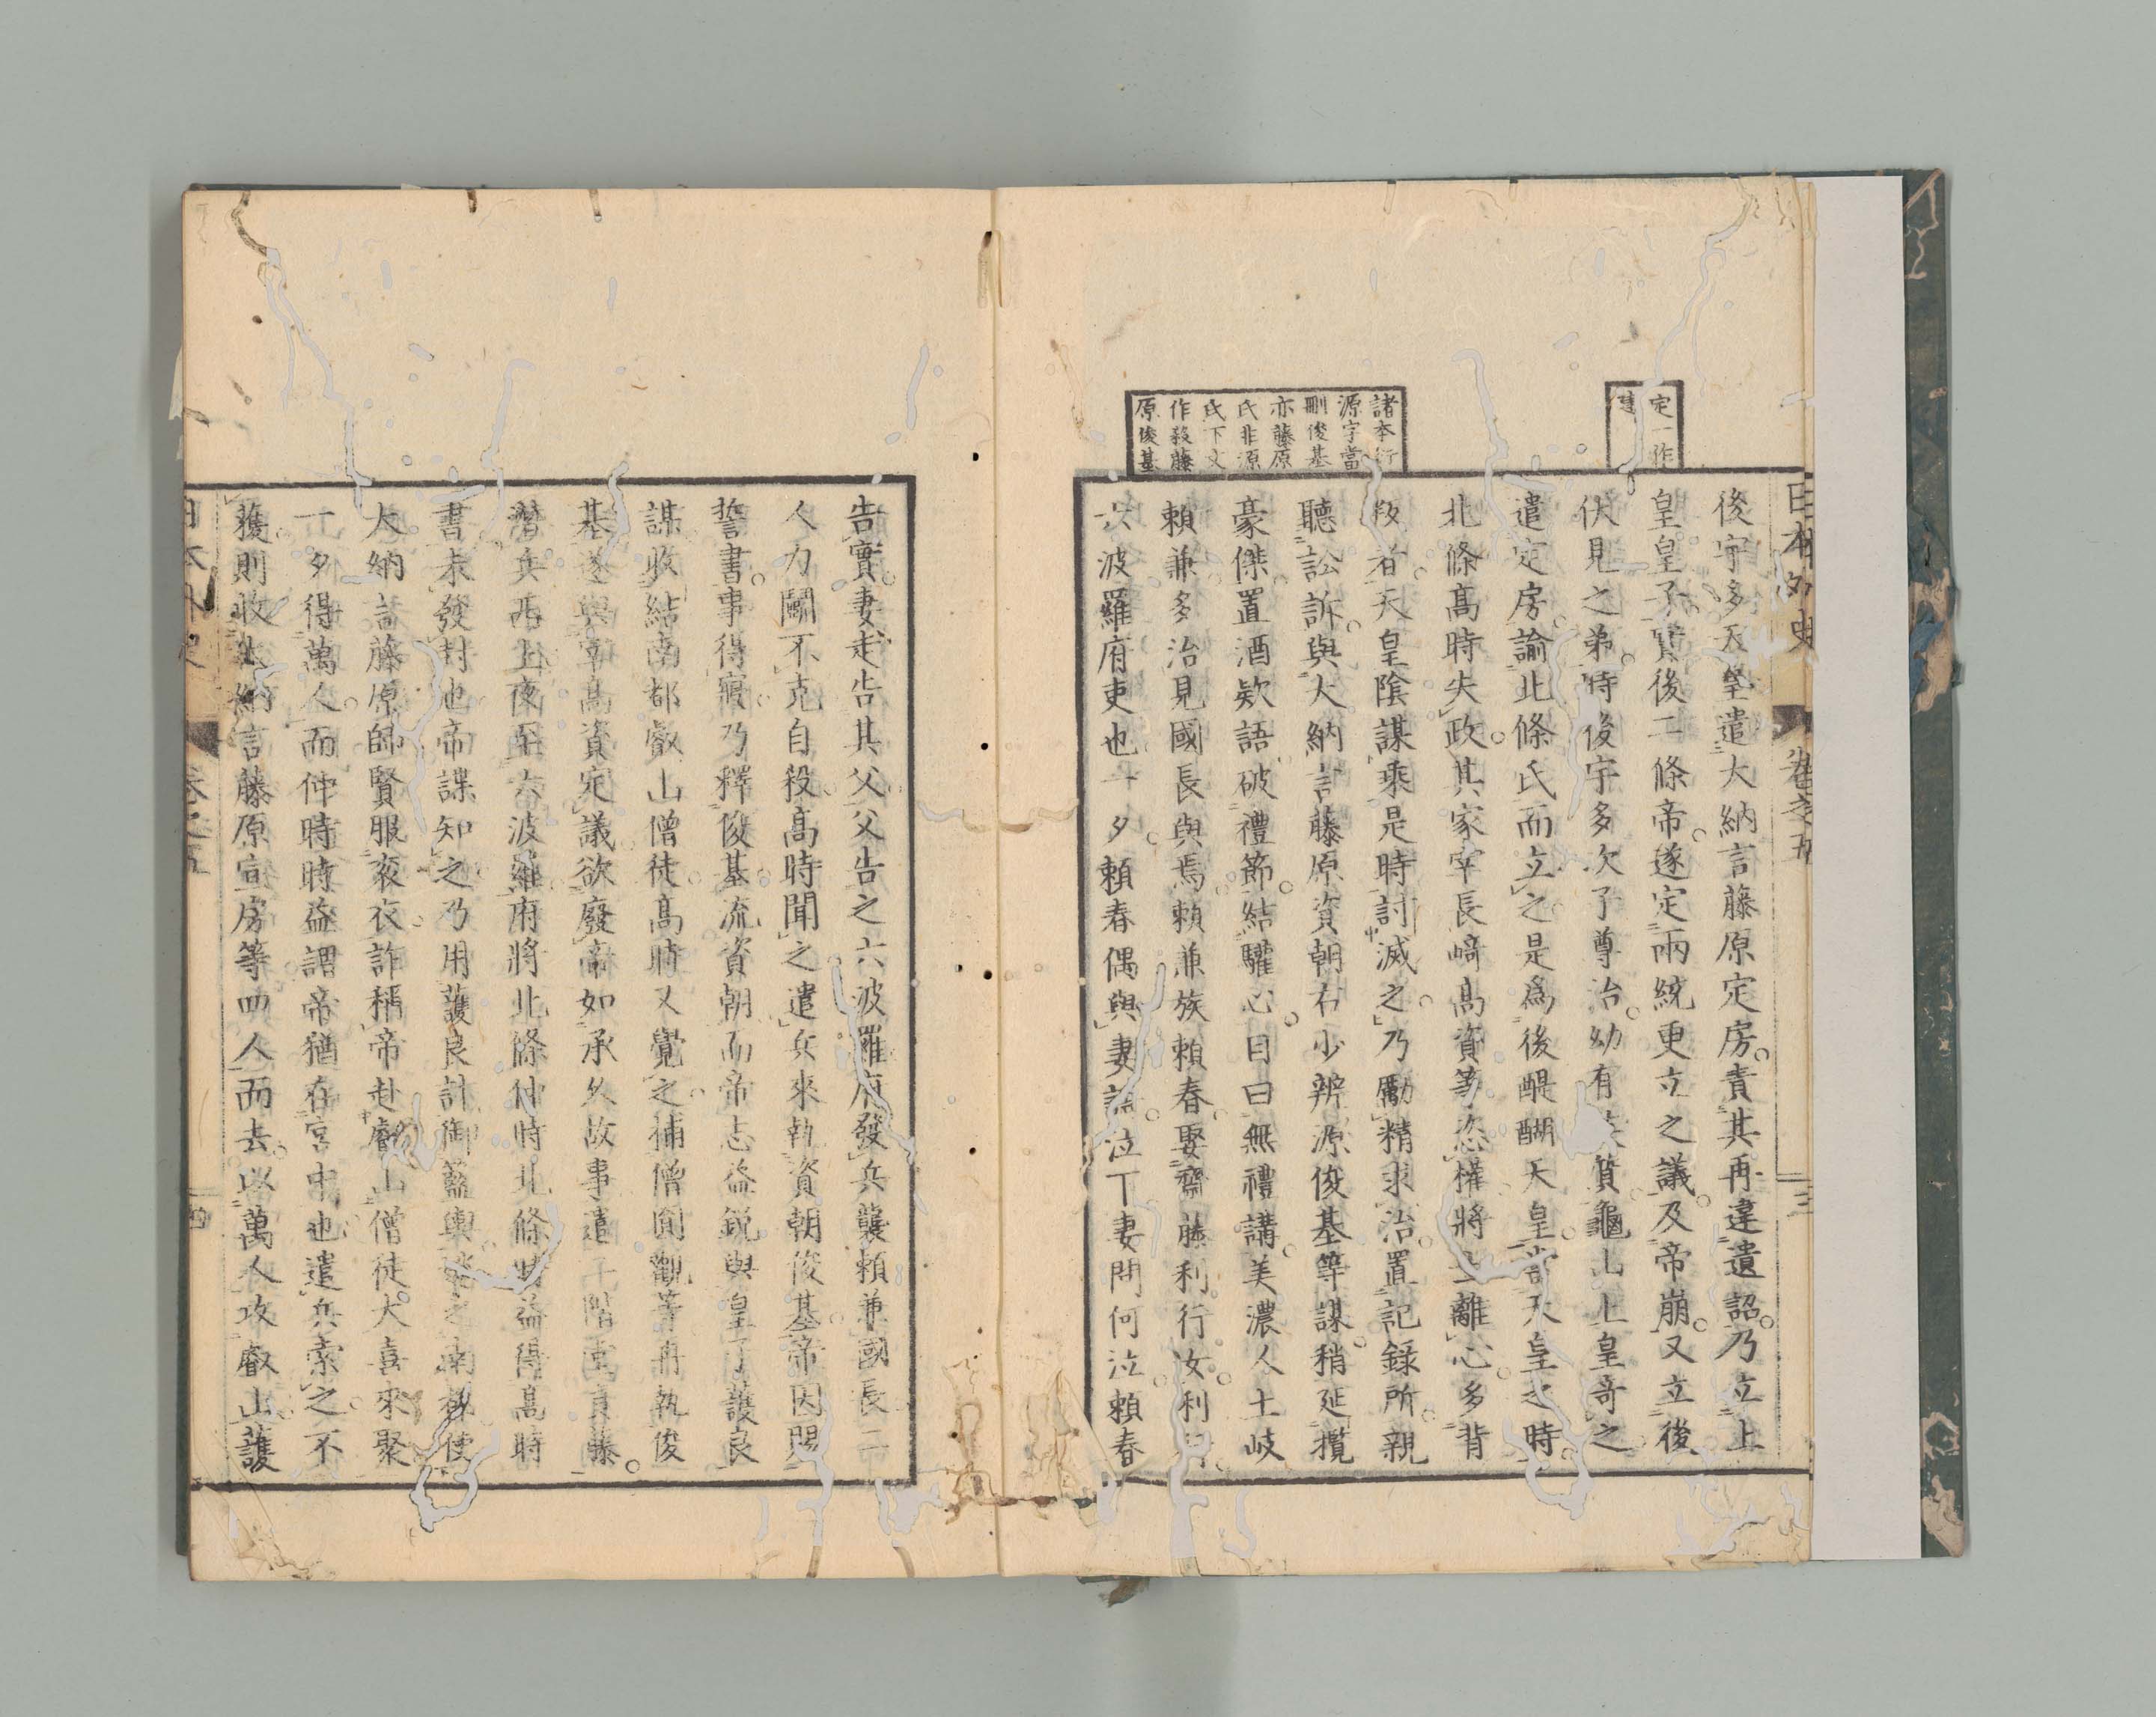 日本外史
卷之五
三
定一作
諸本衍
源字當
刪俊基
亦藤原
氏非源
氏下文
作殺藤
原俊基
後宇多天皇遣大納言藤原定房責其再違遺詔乃立上
皇皇子實後二條帝遂定兩統更立之議及帝崩又立後
伏見之弟時後宇多次子尊治幼有 質龜山上皇奇之
遣定房諭北條氏而立之是爲後醍醐天皇當天皇之時
北條高時失政其家宰長崎高資等恣權將士離心多背
叛者天皇陰謀乘是時討滅之乃勵精求治置記錄所親
聽訟訴與大納言藤原資朝右少辨源俊基等謀稍延攬
豪傑置酒歡語破禮節結驩心目曰無禮講美濃人土岐
賴兼多治見國長與焉賴兼族賴春娶齋藤利行女利行
六波羅府吏也一夕賴春偶與妻訣泣下妻問何泣賴春
告實妻走告其父父告之六波羅府發兵襲賴兼國長二
人力鬭不克自殺高時聞之遣兵來執資朝俊基帝因賜
誓書事得寢乃釋俊基流資朝而帝志益銳與皇子護良
謀收結南都叡山僧徒高時又覺之捕僧圓觀等再執俊
基遂與宰高資定議欲廢帝如承久故事遣二階堂貞藤
潛兵西上夜至六波羅府將北條仲時北條時益得高時
書未發封也帝諜知之乃用護良計御籃輿 之南都使
大納言藤原師賢服袞衣詐稱帝赴叡山僧徒大喜來聚
一夕得萬人而仲時時益謂帝猶在宮中也遣兵索之不
獲則收大納言藤原宣房等四人而去以萬人攻叡山護
日本外史
卷之五
四